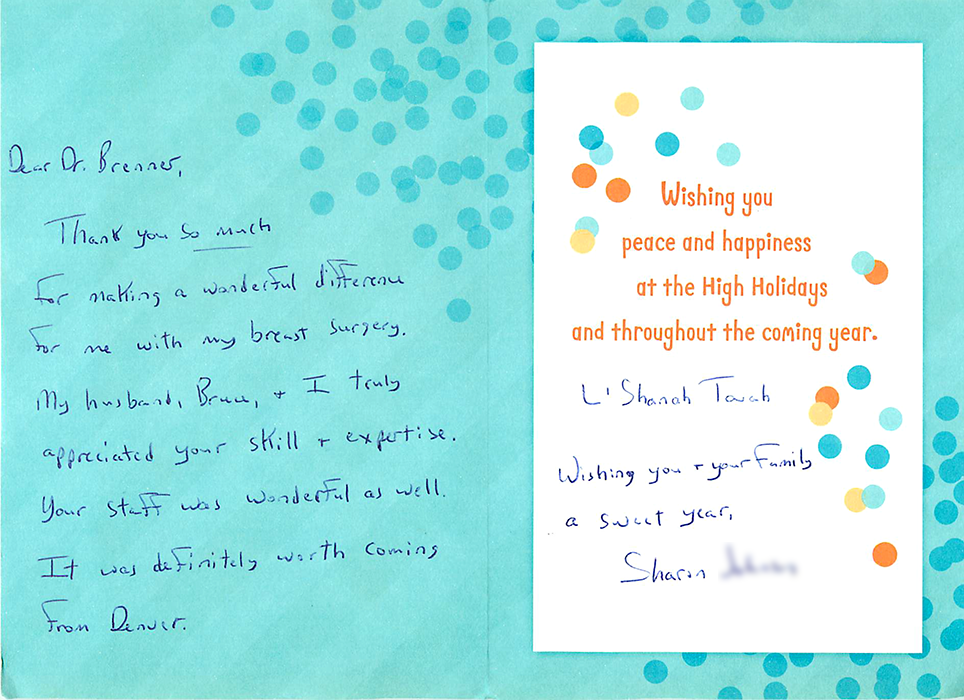 Dear Dr. Brenner,
Thank you so much
for making a wonderful difference
for me with my breast surgery.
My husband, Bruce, + I truly
appreciated your skill + expertise.
Your staff was wonderful as well.
It was definitely worth coming
from Denver.
Wishing you
peace and happiness
at the High Holidays
and throughout the coming year.
L'Shanah Tovah
Wishing you + your family
a sweet year,
Sharon